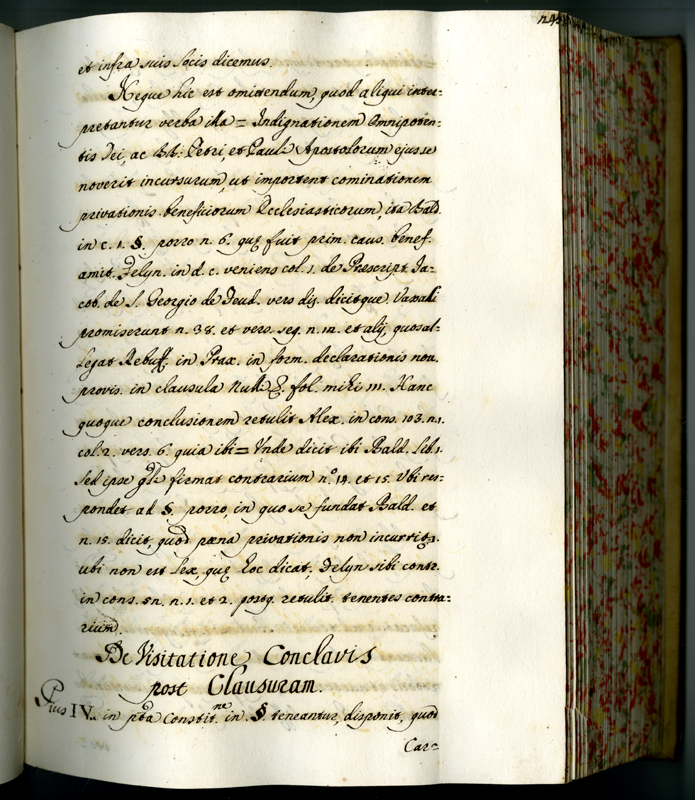 et infra suis locis dicemus.
Neque hic est omittendum, quod aliqui inter-
pretantur verba illa = Indignationem Omnipoten-
tis Dei, ac BB: Petri, et Pauli Apostolorum ejus se
noverit incursurum, ut important cominationem
privationis beneficiorum Ecclesiasticorum, ita Bald.
in c. 1. §. porro n. 6. quę fuit prim. caus. benef.
amit. Felyn. in d. c. veniens col. 1. de Præscript. Ja-
cob. de S. Georgio de feud. vers dig. dicitque Vasalli
promiserunt n. 38. et vers. seq. n. et alij, quos al-
legat Rebuff. in Prax. in form. declarationis nou.
provis. in clausula Nulli &. fol. mihi 111. Hanc
quoque conclusionem retulit Alex. in cons. 103. n. 1.
col. 2. vers. 6. quia ibi = Unde dicit ibi Bald. lib. 1.
Sed ipse firmat contrarium n.º 14. et 15. Ubi res-
pondet ad §. porro, in quo se fundat Bald. et
n. 15. dicit, quod pæna privationis non incurritr.
ubi non est lex, quę hoc dicat, Felyn sibi contr.
in cons. n. 1. et 2. postq. retulit tenentes contra-
rium.
De Visitatione Conclavis
post Clausuram.
Pius IV. in pta Constit.ne in §. teneantur, disponit, quod
Car-